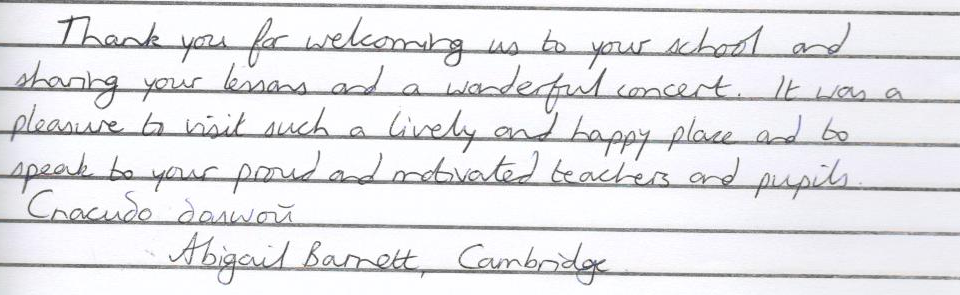 Thank you for welcoming us to your school and
sharing your lessons and a wonderful concert. It was a
pleasure to visit such a lively and happy place and to
speak to your proud and motivated teachers and pupils.
Спасибо болшой
Abigail Barnett, Cambridge